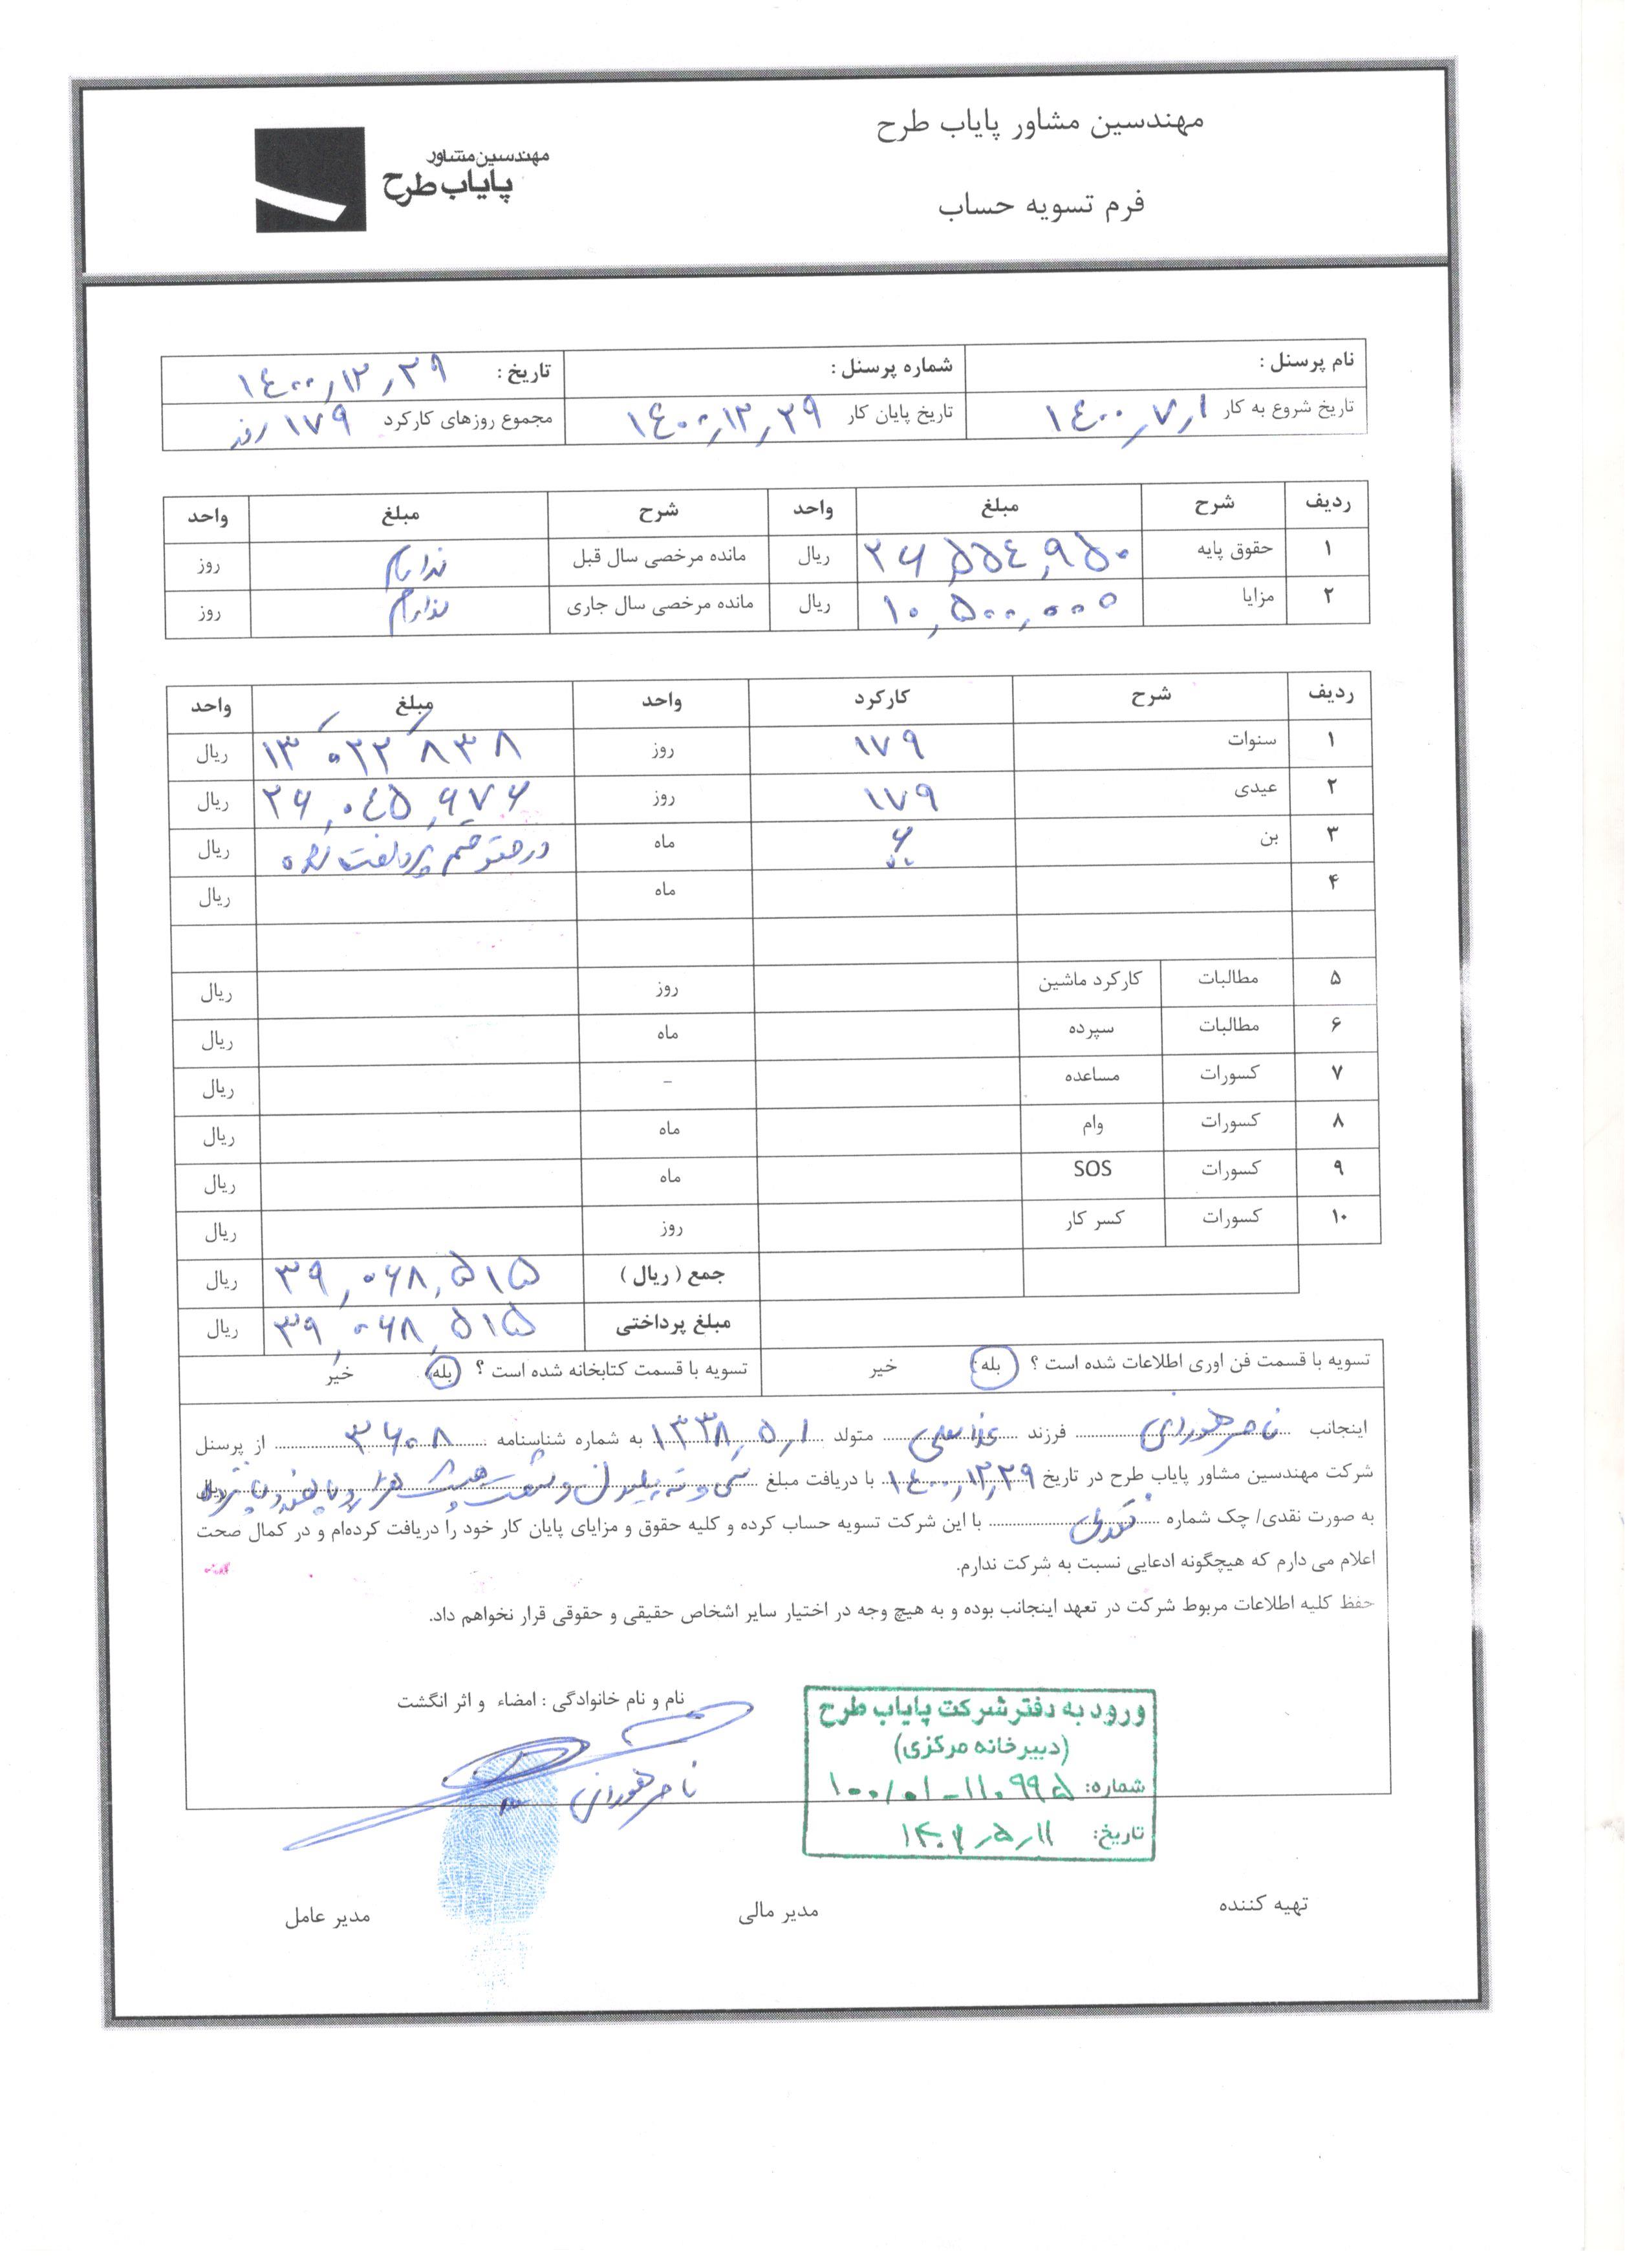 مهندسین مشاور پایاب طرح
مهندسین مشاور
پایاب طرح
فرم تسویه حساب
نام پرسنل : شماره پرسنل : تاریخ : ۱۴۰۰,۱۲,۲۹
تاریخ شروع به کار ۱۴۰۰,۷,۱ تاریخ پایان کار ۱۴۰۰,۱۲,۲۹ مجموع روزهای کارکرد ۱۷۹ روز
ردیف شرح مبلغ واحد شرح مبلغ واحد
۱ حقوق پایه ۲۶,۵۵۴,۹۵۰ ریال مانده مرخصی سال قبل ندارم روز
۲ مزایا ۱۰,۵۰۰,۰۰۰ ریال مانده مرخصی سال جاری ندارم روز
ردیف شرح کارکرد واحد مبلغ واحد
۱ سنوات ۱۷۹ روز ۱۳,۰۲۲,۸۳۸ ریال
۲ عیدی ۱۷۹ روز ۲۶,۰۴۵,۶۷۶ ریال
۳ بن ۶ ماه پرداخت شده ریال
۴ ماه ریال
۵ مطالبات کارکرد ماشین روز ریال
۶ مطالبات سپرده ماه ریال
۷ کسورات مساعده – ریال
۸ کسورات وام ماه ریال
۹ کسورات SOS ماه ریال
۱۰ کسورات کسر کار روز ریال
جمع ( ریال ) ۳۹,۰۶۸,۵۱۵ ریال
مبلغ پرداختی ۳۹,۰۶۸,۵۱۵ ریال
تسویه با قسمت فن اوری اطلاعات شده است ؟ بله خیر تسویه با قسمت کتابخانه شده است ؟ بله خیر
اینجانب ناصر فرزند غلامعلی متولد ۱۳۳۸,۵,۱ به شماره شناسنامه ۳۶۰۸ از پرسنل
شرکت مهندسین مشاور پایاب طرح در تاریخ ۱۴۰۰,۱۲,۲۹ با دریافت مبلغ سی و نه میلیون و شصت و هشت هزار و پانصد و پانزده ریال
به صورت نقدی/ چک شماره نقدی با این شرکت تسویه حساب کرده و کلیه حقوق و مزایای پایان کار خود را دریافت کرده‌ام و در کمال صحت
اعلام می دارم که هیچگونه ادعایی نسبت به شرکت ندارم.
حفظ کلیه اطلاعات مربوط شرکت در تعهد اینجانب بوده و به هیچ وجه در اختیار سایر اشخاص حقیقی و حقوقی قرار نخواهم داد.
نام و نام خانوادگی : امضاء و اثر انگشت
ناصر
ورود به دفتر شرکت پایاب طرح
(دبیرخانه مرکزی)
شماره: ۱۰۰/۰۱-۱۱۰۹۹۵
تاریخ: ۱۴۰۲,۵,۱۱
تهیه کننده مدیر مالی مدیر عامل